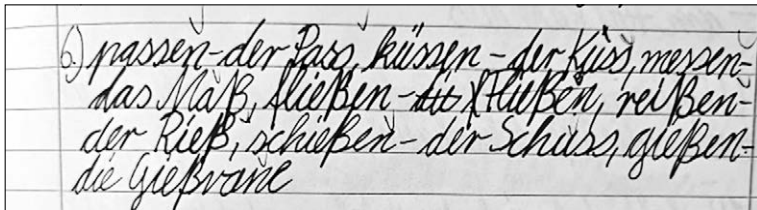 6.) passen-der Pass, küssen-der Kuss, messen-
das Maß, fließen-Fließen, reißen-
der Rieß, schießen-der Schuss, gießen-
die Gießvane